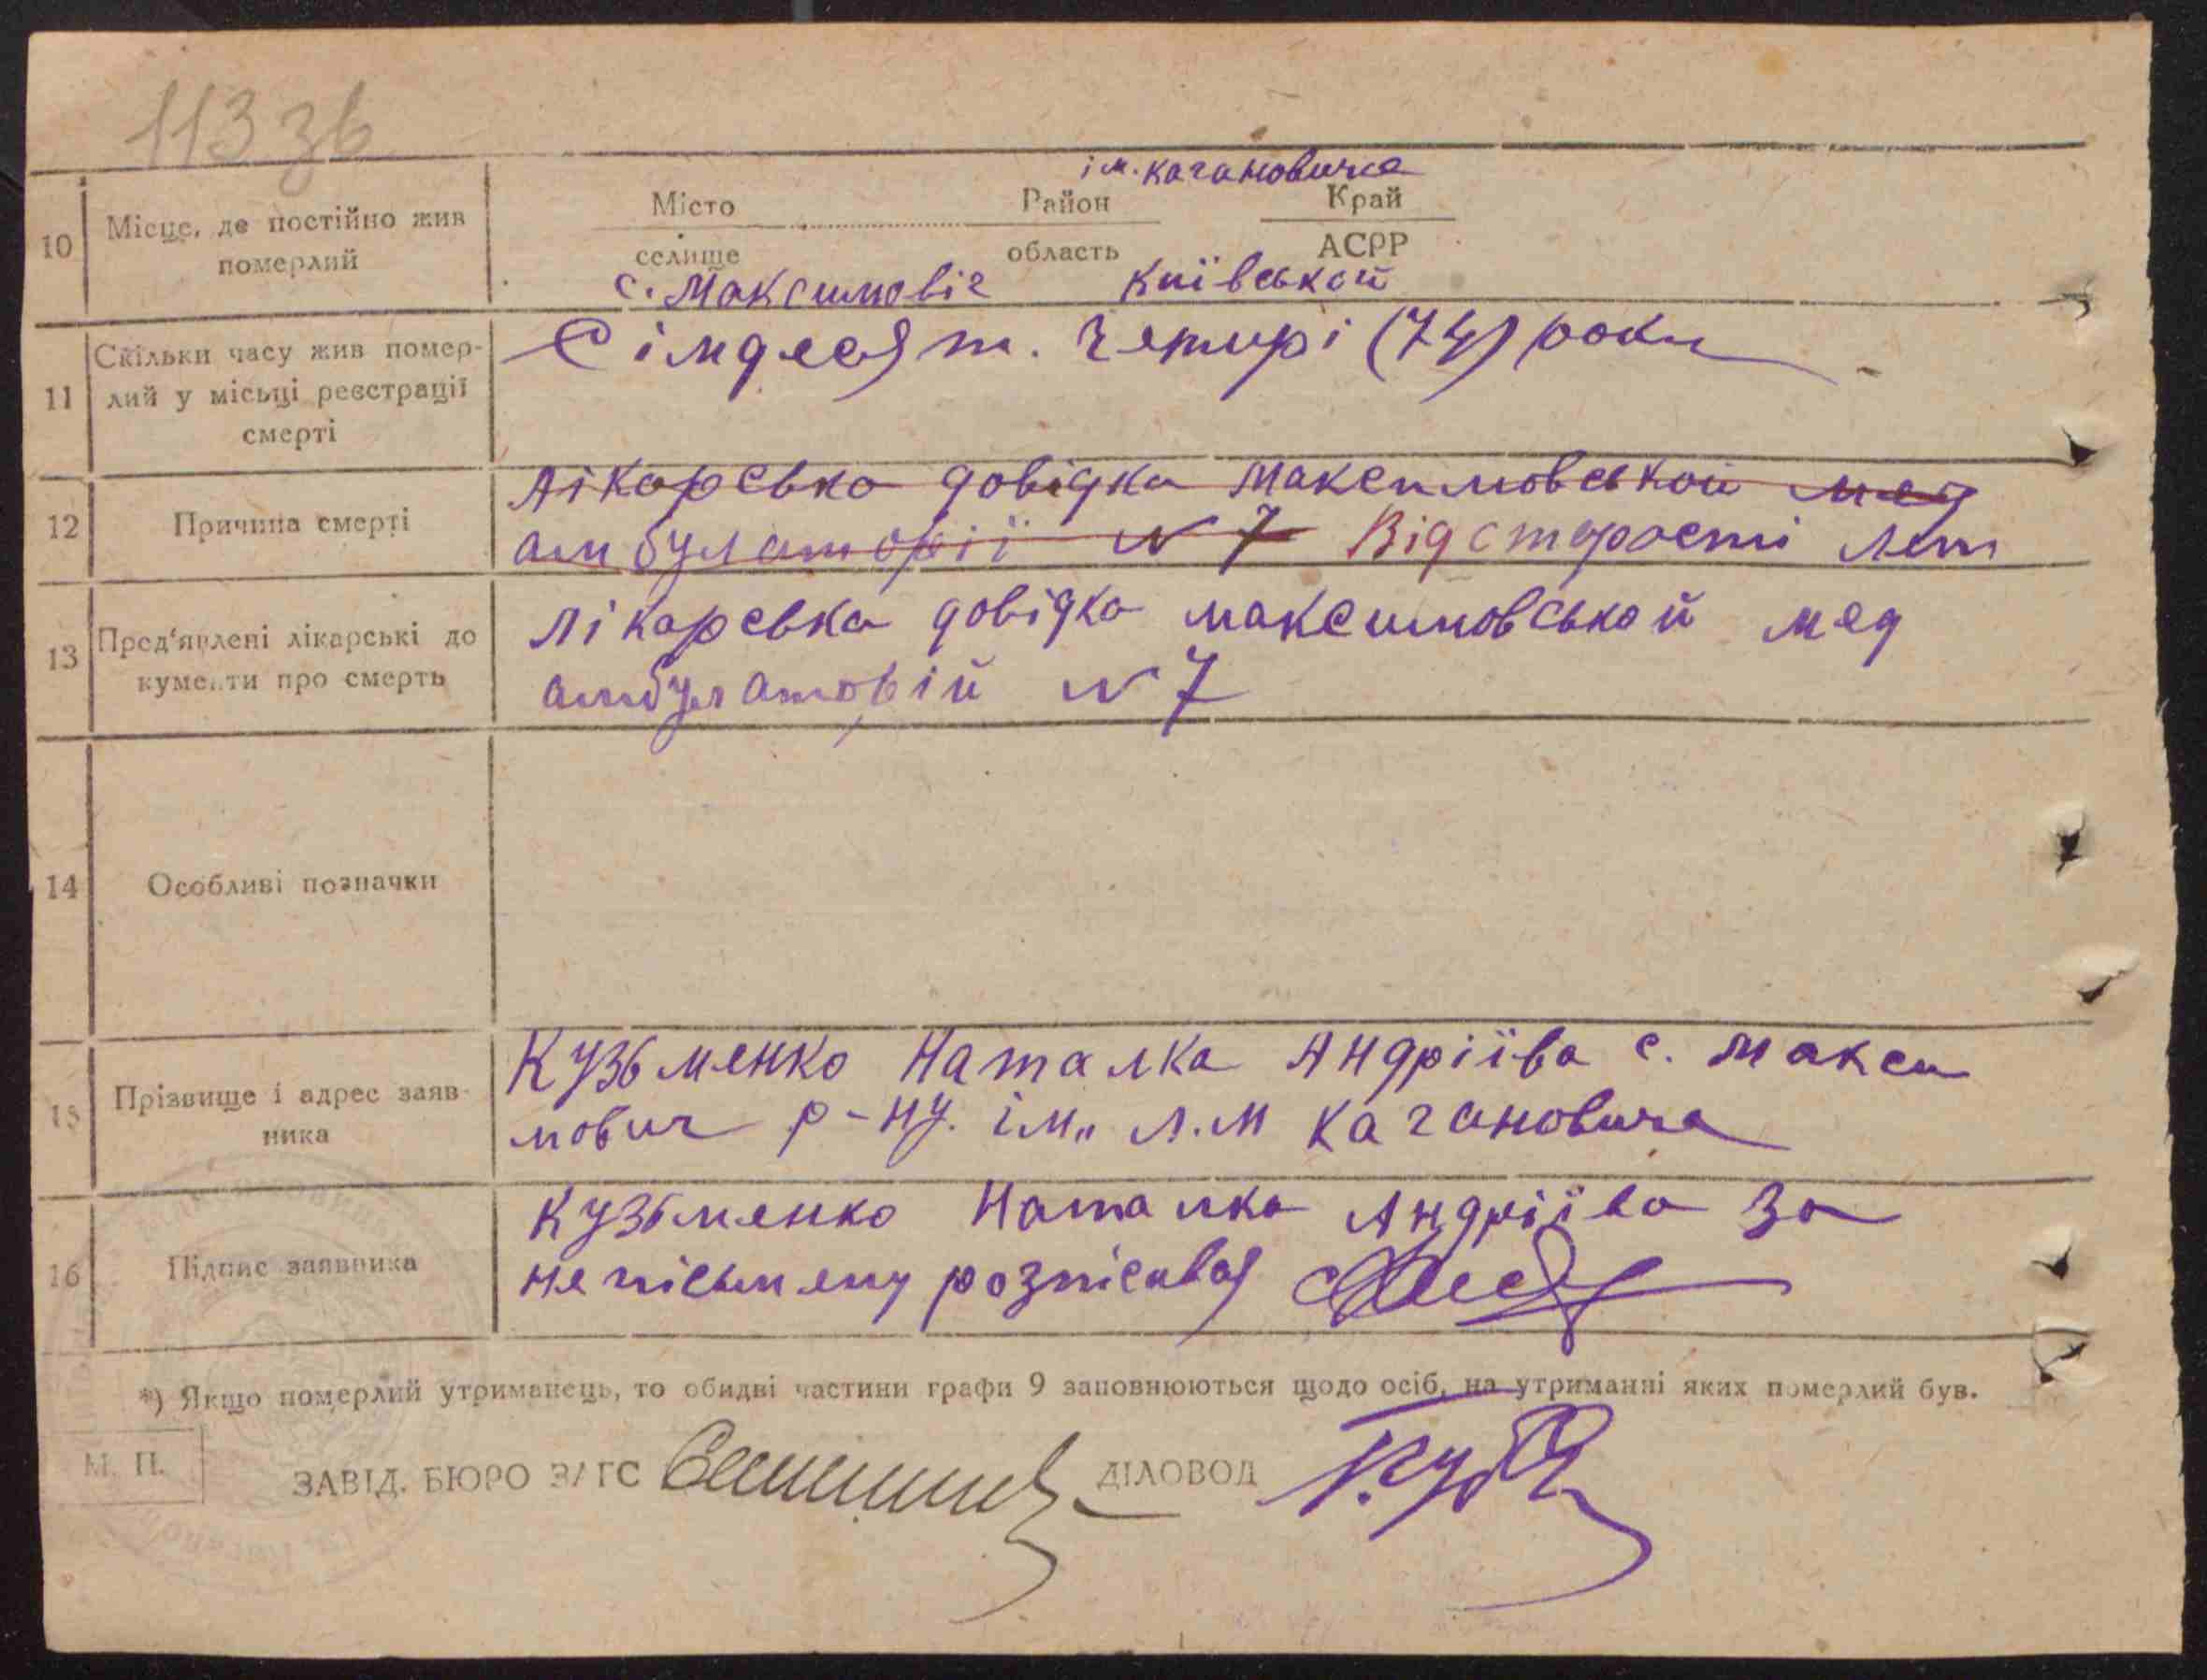 113 зв
ім. Кагановича
10 Місце, де постійно жив померлий
Місто Район Край
селище область АСРР
с. Максимовіч Київської
11 Скільки часу жив помер-
лий у місьці реєстрації
смерті
Сімдесят. Четирі (74) роки
12 Причина смерті
Лікарсько довідка Максимовськой мед
амбулаторії № 7 Від старості лет
13 Пред'явлені лікарські до
кументи про смерть
Лікарська довідка максимовськой мед
амбулаторій № 7
14 Особливі позначки
15 Прізвище і адрес заяв-
ника
Кузьменко Наталка Андріїва с. Макси
мович р-ну. ім. Л.М Кагановича
16 Підпис заявника
Кузьменко Наталка Андріїва За
непісьмену розпісався
*) Якщо померлий утриманець, то обидві частини графи 9 заповнюються щодо осіб, на утриманні яких померлий був.
М. П.
ЗАВІД. БЮРО ЗАГС ДІЛОВОД